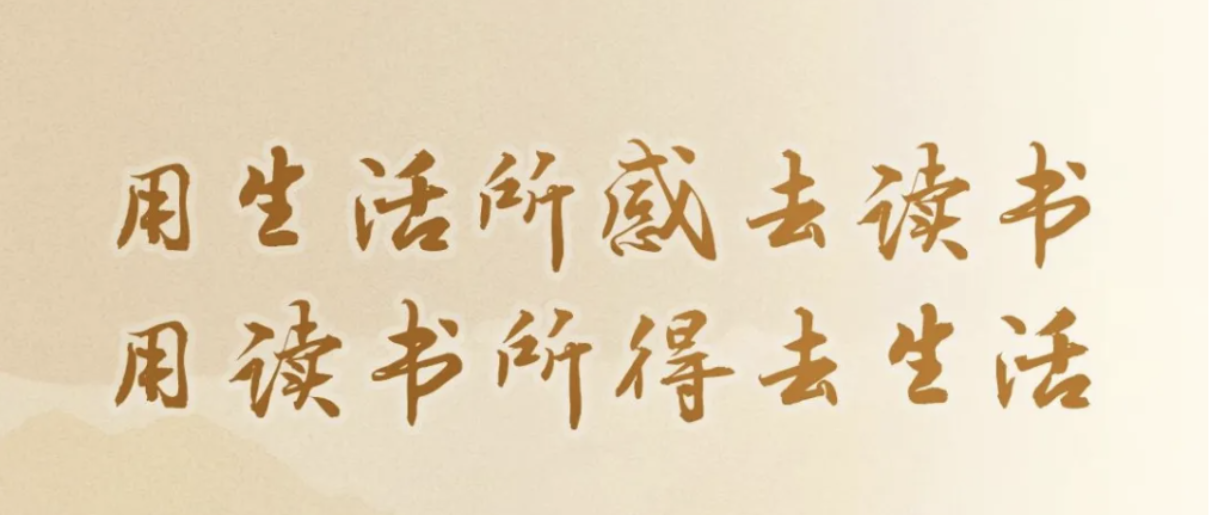 用生活所感去读书
用读书所得去生活